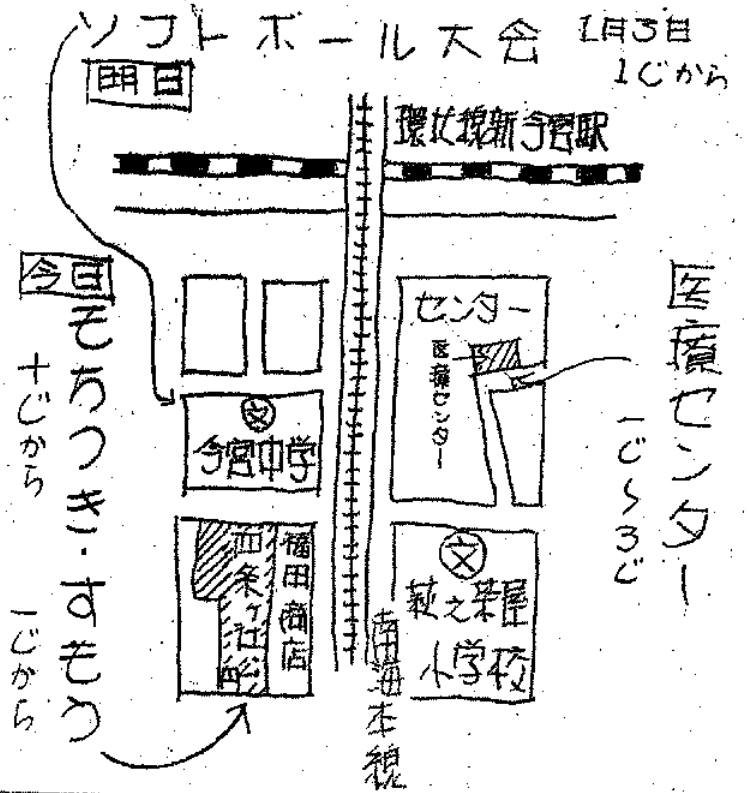 ソフトボール大会 1月3日
1じから
明日
環状線新今宮駅
今日
もちつき・すもう
十じから
一じから
センター
医療センター
医療センター
一じ〜3じ
文
今宮中学
四条ヶ辻公園
福田商店
文
萩之茶屋
小学校
南海本線